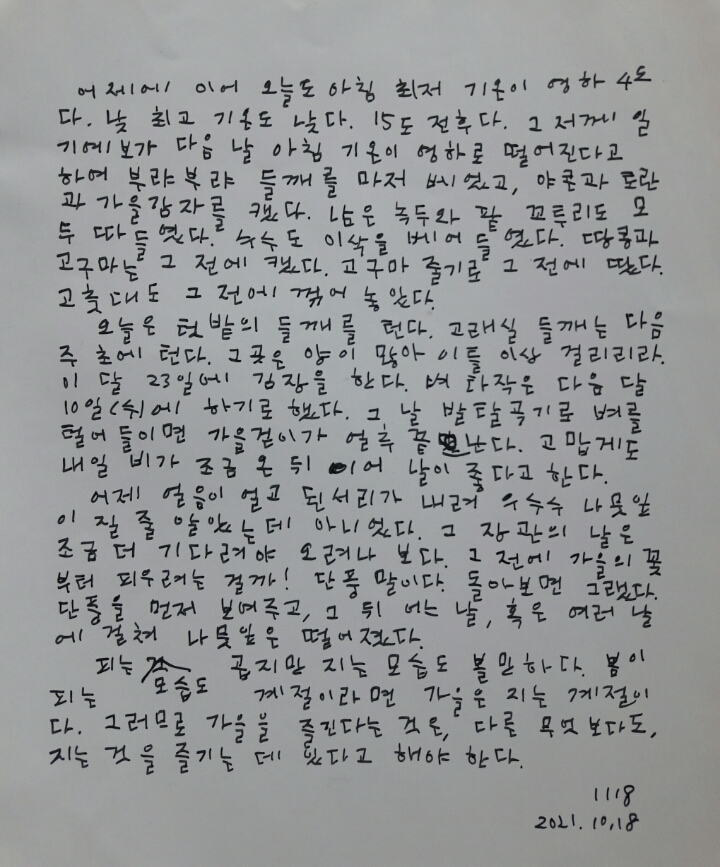 어제에 이어 오늘도 아침 최저 기온이 영하 4도
다. 낮 최고 기온도 낮다. 15도 전후다. 그저께 일
기예보가 다음 날 아침 기온이 영하로 떨어진다고
하여 부랴부랴 들깨를 마저 베었고, 야콘과 토란
과 가을감자를 캤다. 남은 녹두와 팥 꼬투리도 모
두 따 들였다. 수수도 이삭을 베어 들였다. 땅콩과
고구마는 그 전에 캤다. 고구마 줄기도 그 전에 땄다.
고춧대도 그 전에 꺾어 놓았다.
오늘은 텃밭의 들깨를 턴다. 고래실 들깨는 다음
주 초에 턴다. 그곳은 양이 많아 이틀 이상 걸리리라.
이 달 23일에 김장을 한다. 벼 타작은 다음 달
10일(수)에 하기로 했다. 그 날 발탈곡기로 벼를
털어 들이면 가을걷이가 얼추 끝난다. 고맙게도
내일 비가 조금 온 뒤 이어 날이 좋다고 한다.
어제 얼음이 얼고 된서리가 내려 우수수 나뭇잎
이 질 줄 알았는데 아니었다. 그 장관의 날은
조금 더 기다려야 오려나 보다. 그 전에 가을의 꽃
부터 피우려는 걸까! 단풍 말이다. 돌아보면 그랬다.
단풍을 먼저 보여주고, 그 뒤 어느 날, 혹은 여러 날
에 걸쳐 나뭇잎은 떨어졌다.
피는 모습도 곱지만 지는 모습도 볼만하다. 봄이
피는 계절이라면 가을은 지는 계절이
다. 그러므로 가을을 즐긴다는 것은, 다른 무엇보다도,
지는 것을 즐기는 데 있다고 해야 한다.
1118
2021.10.18